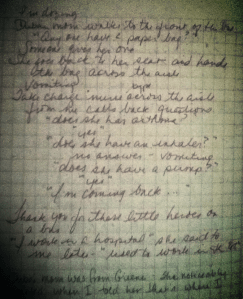 I'm dozing
mom walks to the front of the bus
"Any one have a paper bag"
Someone gives her one
She goes back to her seat and hands
the bag across the aisle
Vomiting
Take charge nurse across the aisle
from my calls back questions
"does she has asthma"
"yes"
"does she have an inhaler?"
no answer - vomiting
"does she have a pump?"
"yes"
"I'm coming back..."
Thank you for those little heroes on
a bus
"I work in a hospital" she said to
me later "used to work in
mom was from Greene - she noticeably
when I told her that's where I